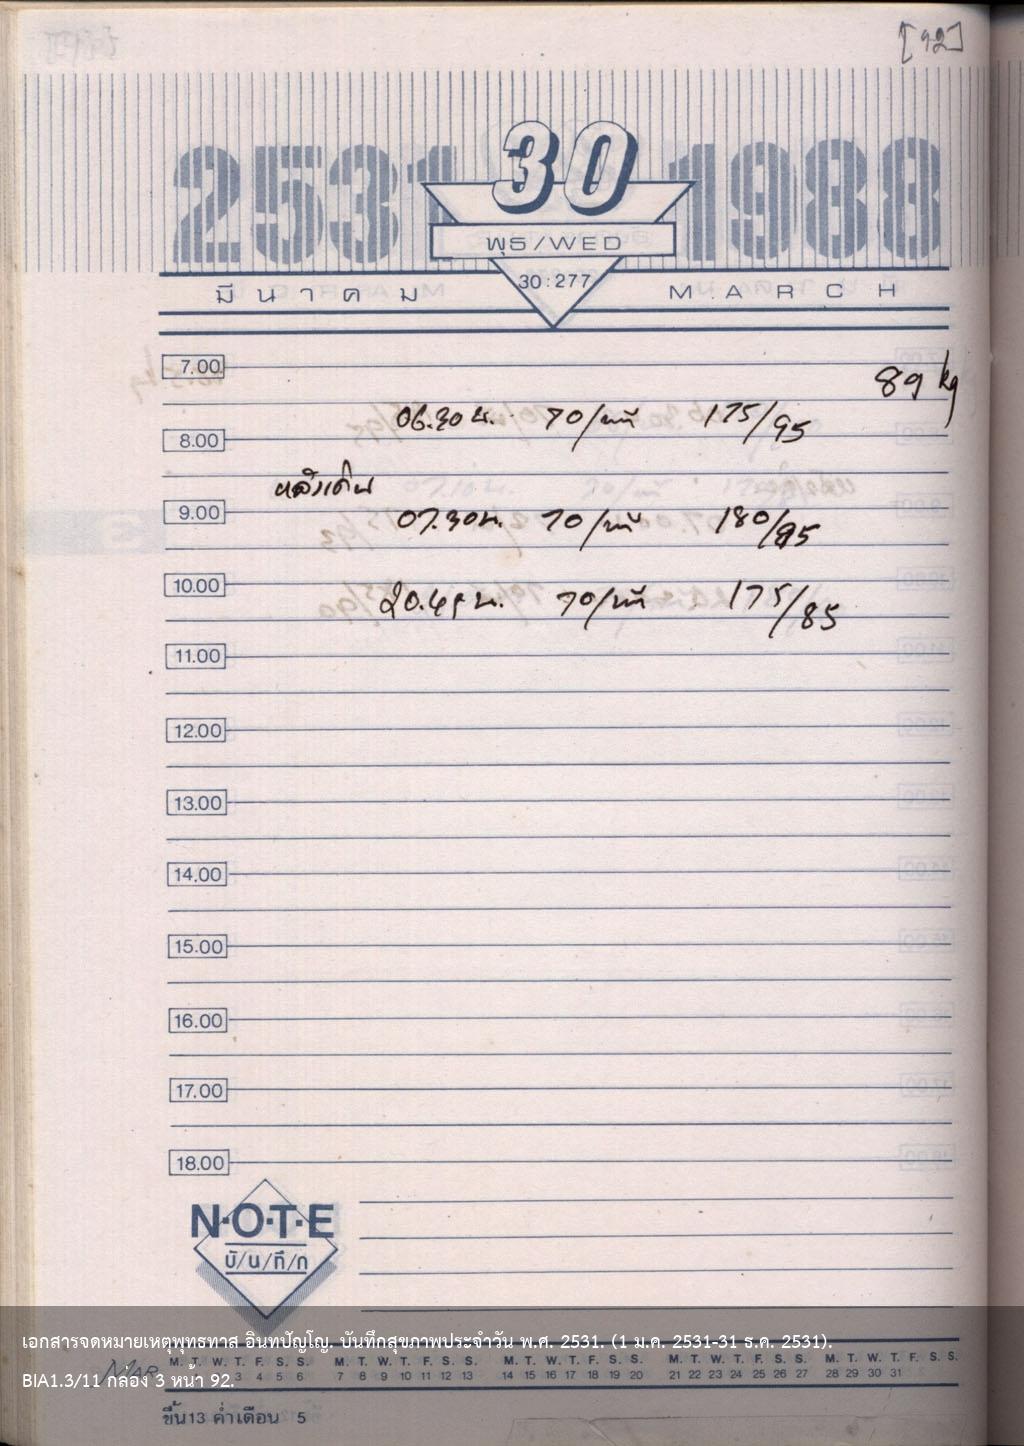 [92]
2531 30 1988
พุธ/WED
30:277
มีนาคม MARCH
7.00
89 kg
06.30 น. 70/นาที 175/95
8.00
หลังเดิน
9.00
07.30 น. 70/นาที 180/95
10.00
20.45 น. 70/นาที 175/85
11.00
12.00
13.00
14.00
15.00
16.00
17.00
18.00
N·O·T·E
บั/น/ทึ/ก
เอกสารจดหมายเหตุพุทธทาส อินทปัญโญ. บันทึกสุขภาพประจำวัน พ.ศ. 2531. (1 ม.ค. 2531-31 ธ.ค. 2531).
MAR M. T. W. T. F. S. S. M. T. W. T. F. S. S. M. T. W. T. F. S. S. M. T. W. T. F. S. S. M. T. W. T. F. S. S.
3 4 5 6 7 8 9 10 11 12 13 14 15 16 17 18 19 20 21 22 23 24 25 26 27 28 29 30 31
BIA1.3/11 กล่อง 3 หน้า 92.
ขึ้น 13 ค่ำ เดือน 5